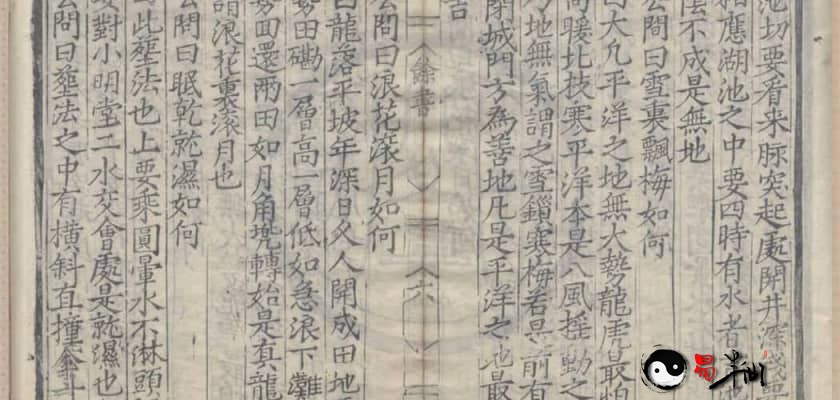 池切要看来脉突起處開井深浅
相應湖池之中要四時有水者
陰不成是無地
公問曰雪裏飄梅如何
曰大凢平洋之地無大勢龍虎最怕
高暖北技寒平洋本是八風摇動之
乃地無氣謂之雪鎖寒梅若是前有
閉城門方為善地凡是平洋之地最
吉
餘書
六
公問曰浪花滚月如何
曰龍落平坡年深日久人開成田地
勢田磡一層高一層低如急浪下灘
勢回還兩田如月角𠒋轉始是真龍
謂浪花裏滚月也
公問曰眠乾就濕如何
曰此塟法也上要乘圓暈水不淋頭
要對小明堂二水交會處是就濕也
公問曰塟法之中有横斜直撞
易